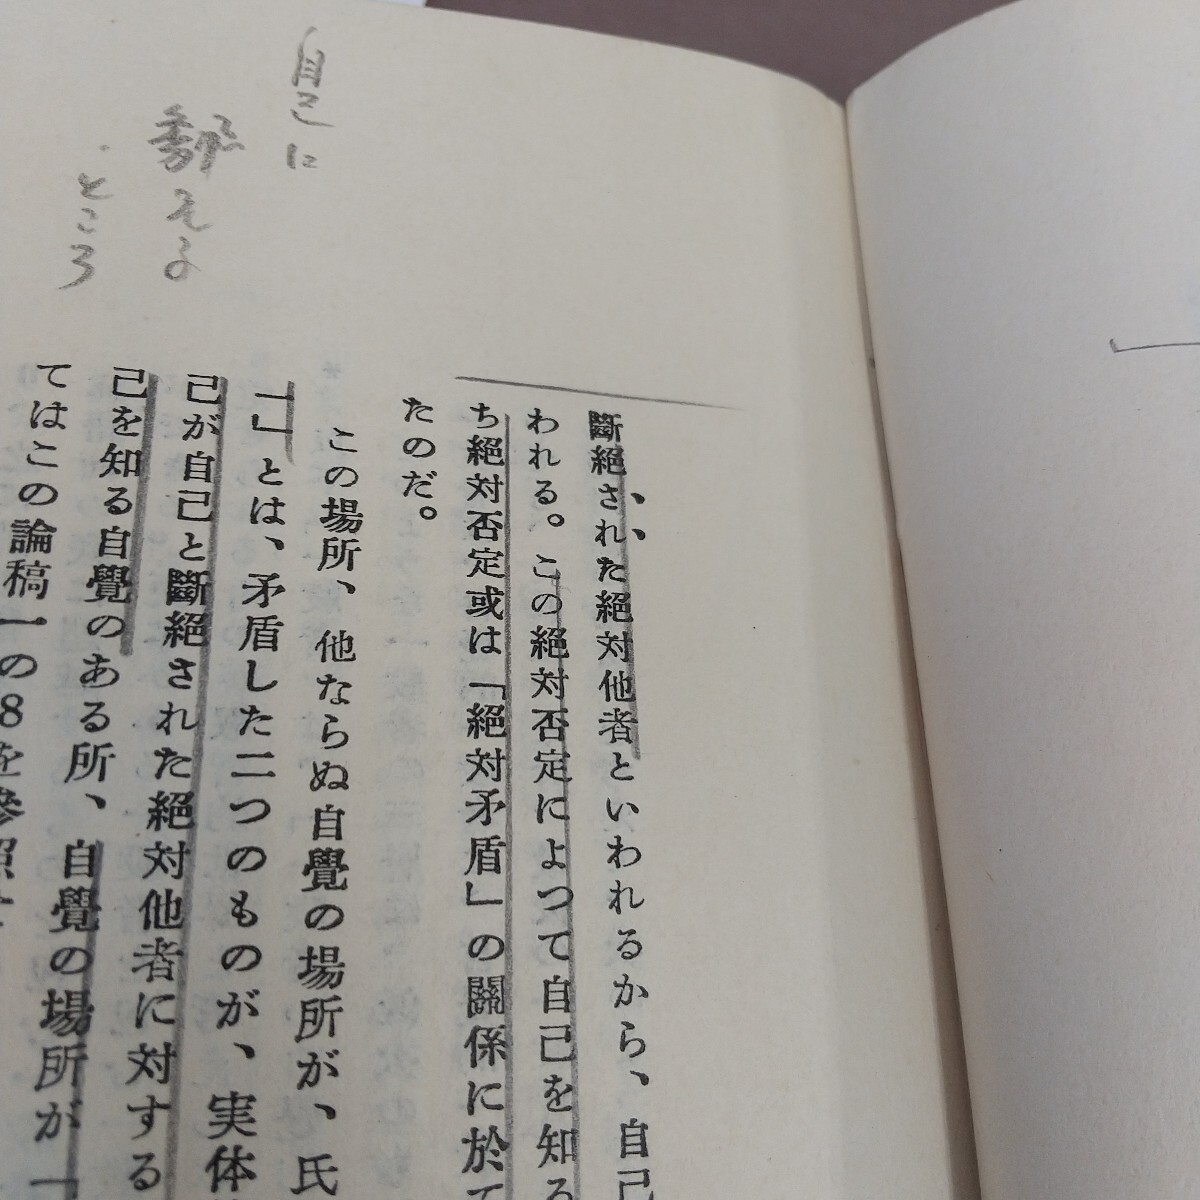 自己に
ところ
斷絕された絕対他者といわれるから、自己
われる。この絕対否定によつて自己を知る
ち絕対否定或は「絕対矛盾」の關係に於て
たのだ。
この場所、他ならぬ自覺の場所が、氏
一」とは、矛盾した二つのものが、実体
己が自己と斷絕された絕対他者に対する
己を知る自覺のある所、自覺の場所が「
てはこの論稿一の8を參照せ